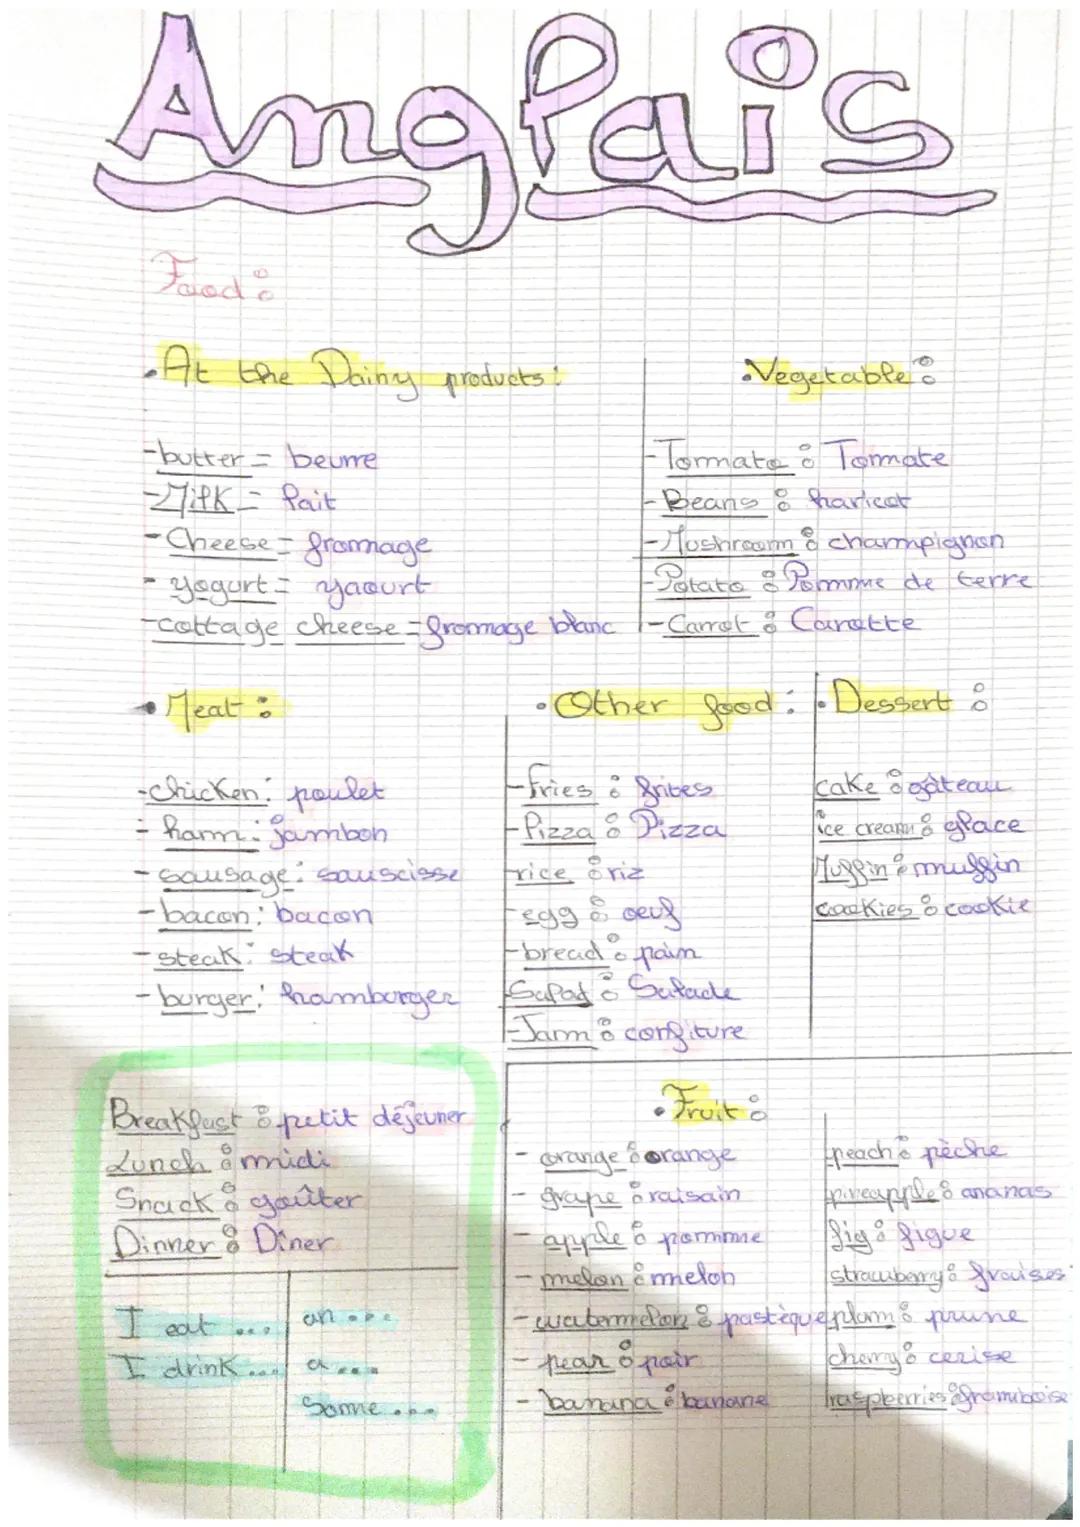 Anglais
Food :
• At the Dainy products :
- butter = beurre
- Milk = lait
- Cheese = fromage
- yogurt = yaourt
- cottage cheese = fromage blanc
• Vegetable :
- Tomato : Tomate
- Beans : haricot
- Mushroom : champignon
- Potato : Pomme de terre
- Carrot : Carotte
• Meat :
- chicken : poulet
- ham : jambon
- sausage : sauscisse
- bacon : bacon
- steak : steak
- burger : hamburger
• Other food :
- fries : frites
- Pizza : Pizza
- rice : riz
- egg : oeuf
- bread : pain
- Salad : Salade
- Jam : confiture
• Dessert :
cake : gâteau
ice cream : glace
Muffin : muffin
cookies : cookie
Breakfast : petit déjeuner
Lunch : midi
Snack : goûter
Dinner : Dîner
I eat ...
I drink ...
an ...
a ...
Some ...
• Fruit :
- orange : orange
- grape : raisain
- apple : pomme
- melon : melon
- watermelon : pastèque
- pear : poir
- banana : banane
- peach : pèche
- pineapple : ananas
fig : figue
strawberry : fraises
plam : prune
cherry : cerise
raspberries : framboise